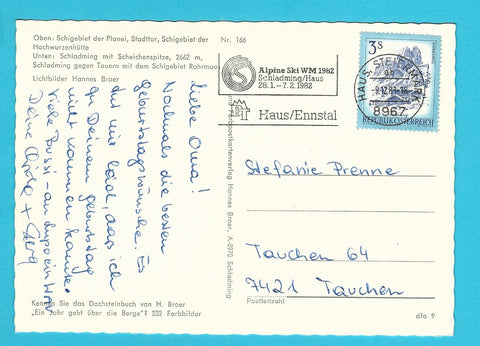 Oben: Schigebiet der Planei, Stadttor, Schigebiet der
Hochwurzenhütte
Unten: Schladming mit Scheichenspitze, 2662 m,
Schladming gegen Tauern mit dem Schigebiet Rohrmoos
Lichtbilder Hannes Broer
Nr. 166
Liebe Oma!
Nochmals die besten
Geburtstagswünsche. Es
tut mir leid, dass ich
zu Deinem Geburtstag
nicht kommen kann.
Viele Bussi - an
Deine
+
Kennen Sie das Dachsteinbuch von H. Broer
„Ein Jahr geht über die Berge"? 232 Farbbilder
postkartenverlag Hannes Broer, A-8970 Schladming
Alpine Ski WM 1982
Schladming/Haus
28.1. – 7.2. 1982
Haus/Ennstal
HAUS, STEIERMARK
8967
3 S
REPUBLIK ÖSTERREICH
Stefanie Prenne
Tauchen 64
7421 Tauchen
Postleitzahl
dfa 9